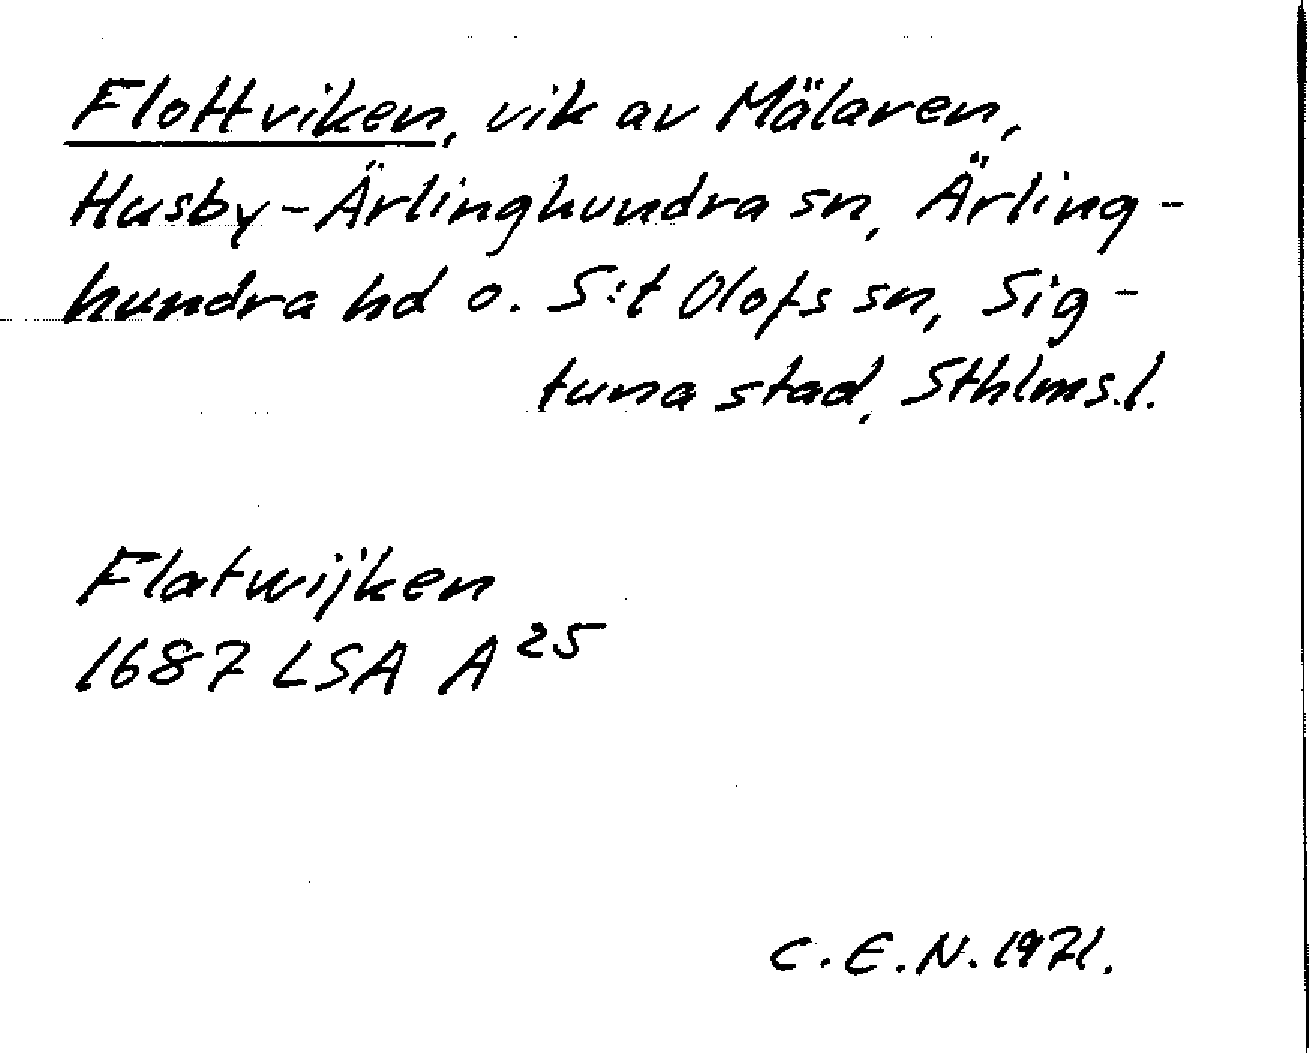 Flottviken, vik av Mälaren,
Husby-Ärlinghundra sn, Ärling-
hundra hd o. S:t Olofs sn, Sig-
tuna stad, Sthlms.l.
Flatwijken
1687 LSA A²⁵
C.E.N. 1971.